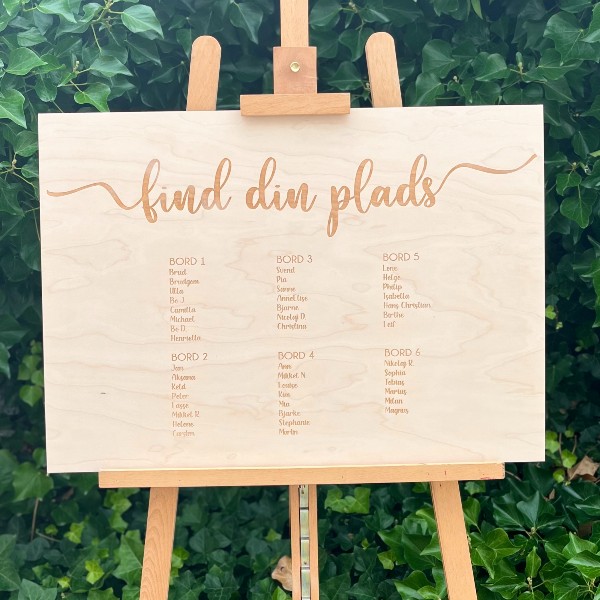 find din plads
BORD 1
Brud
Brudgom
Ulla
Bo J.
Camilla
Michael
Bo D.
Henriette
BORD 2
Jan
Aksana
Keld
Peter
Lasse
Mikkel R.
Helene
Carsten
BORD 3
Svend
Pia
Sanne
AnneLise
Bjarne
Nicolaj D.
Christina
BORD 4
Ann
Mikkel N.
Louise
Kim
Mia
Bjarke
Stephanie
Martin
BORD 5
Lene
Helge
Philip
Isabella
Hans Christian
Berthe
Leif
BORD 6
Nikolaj R.
Sophia
Tobias
Marius
Milan
Magnus